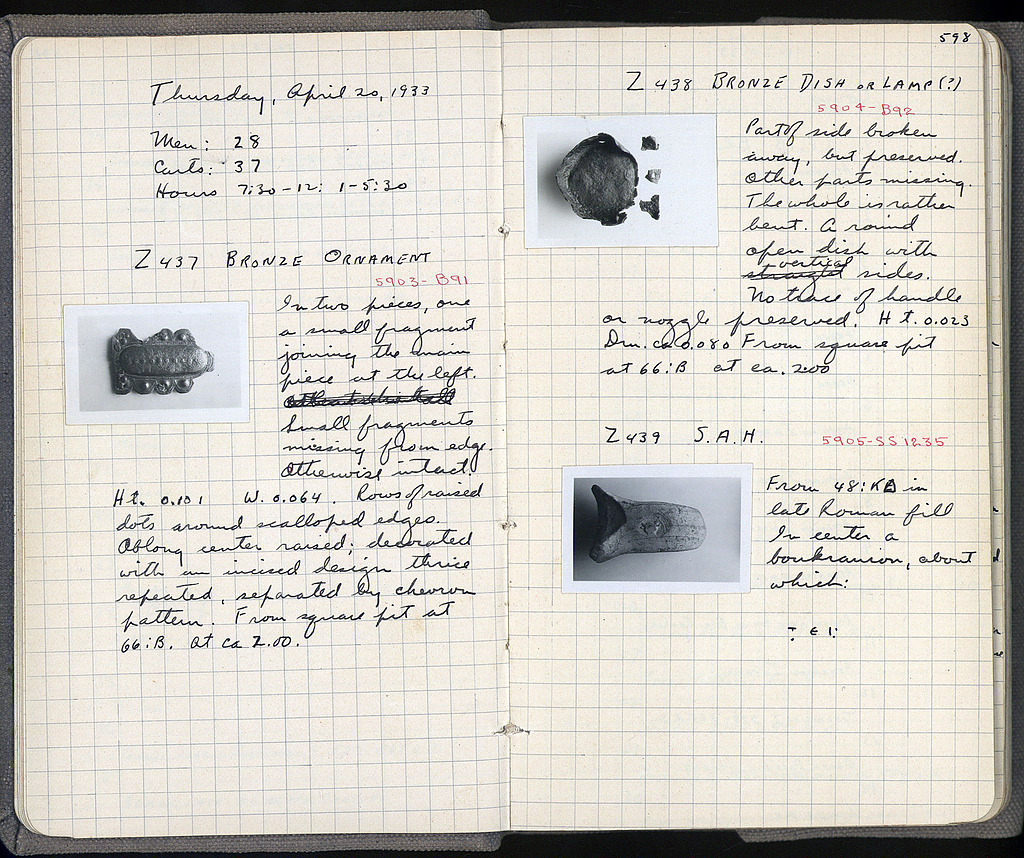 Thursday, April 20, 1933
Men: 28
Carts: 37
Hours 7:30-12: 1-5:30
Z 437 BRONZE ORNAMENT
5903-B91
In two pieces, one
a small fragment
joining the main
piece at the left.
Small fragments
missing from edge.
Otherwise intact.
Ht. 0.101 W. 0.064. Rows of raised
dots around scalloped edges.
Oblong center raised; decorated
with an incised design thrice
repeated, separated by chevron
pattern. From square pit at
66:B. At ca 2.00.
598
Z 438 BRONZE DISH OR LAMP(?)
5904-B92
Part of side broken
away, but preserved.
Other parts missing.
The whole is rather
bent. A round
open dish with
vertical
straight sides.
No trace of handle
or nozzle preserved. Ht. 0.023
Dm. ca 0.080 From square pit
at 66:B at ca. 2.00
Z 439 S.A.H.
5905-SS1235
From 48:ΚΔ in
late Roman fill
In center a
boukranion, about
which: